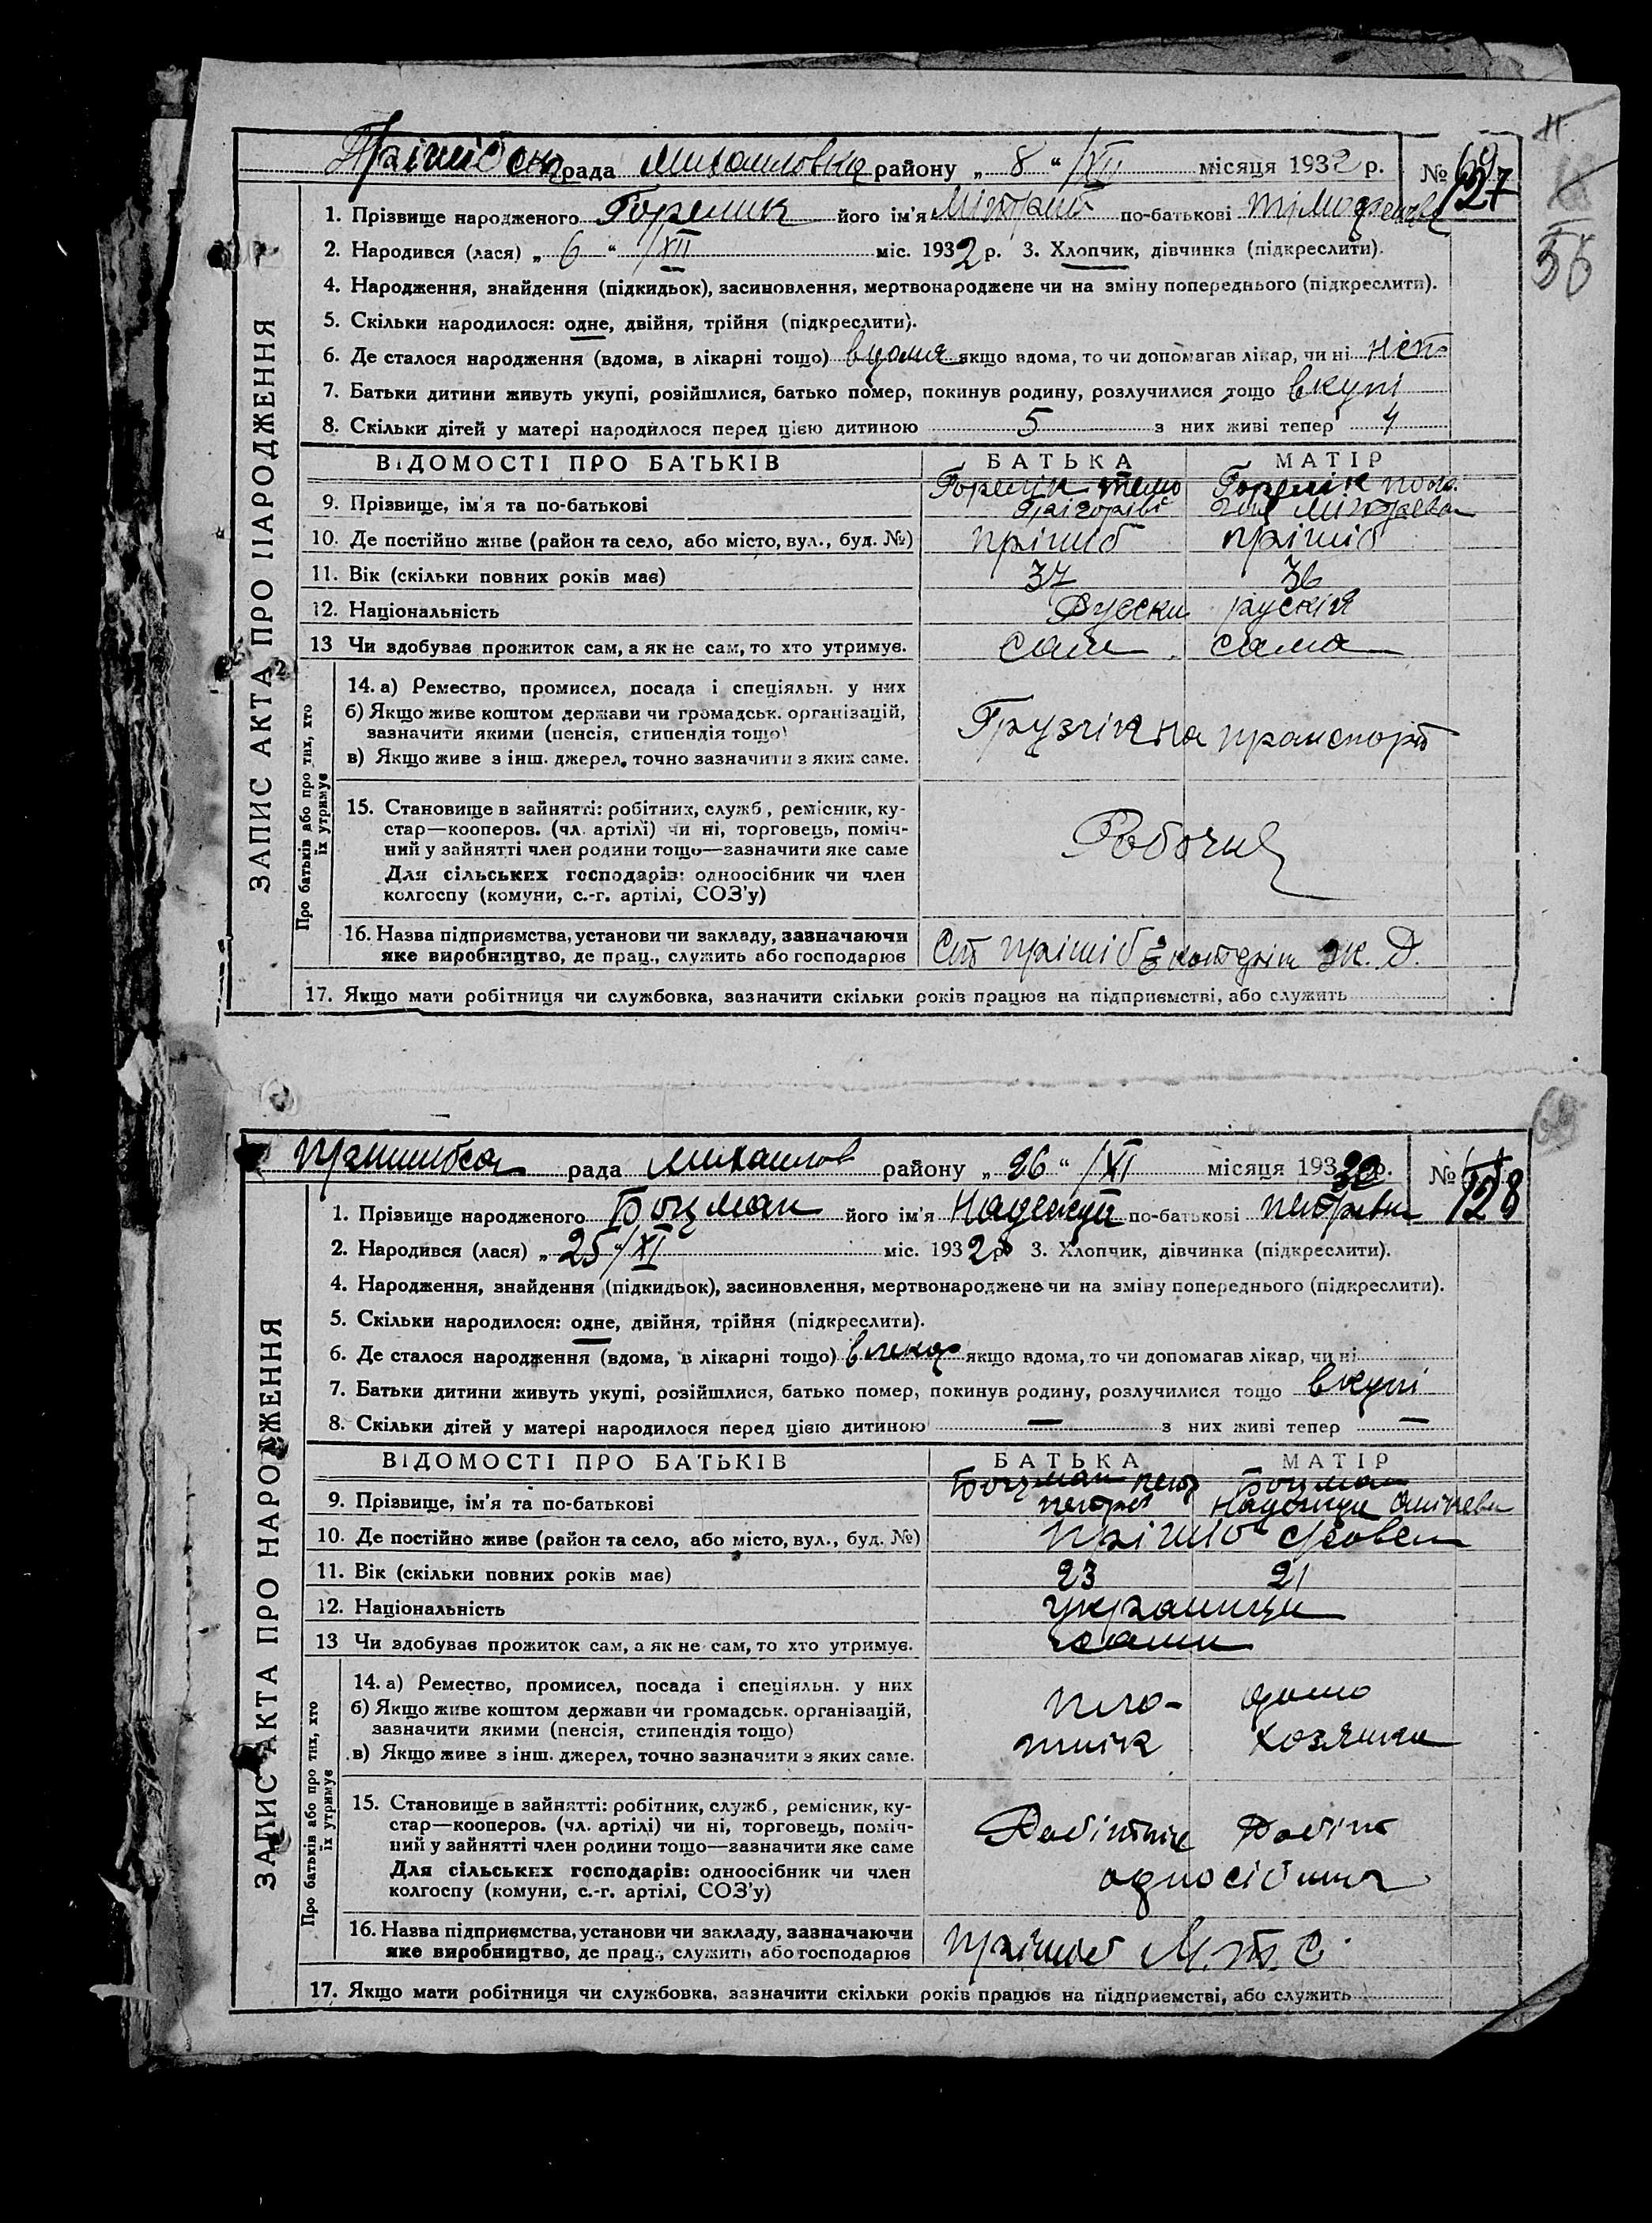 рада Михайловка району „ 8 “ /XII місяця 1932 р. № 127
55
ЗАПИС АКТА ПРО НАРОДЖЕННЯ
1. Прізвище народженого Горелик його ім'я Мітрий по-батькові
2. Народився (лася) „ 6 “ /XII міс. 1932 р. 3. Хлопчик, дівчинка (підкреслити).
4. Народження, знайдення (підкидьок), засиновлення, мертвонароджене чи на зміну попереднього (підкреслити).
5. Скільки народилося: одне, двійня, трійня (підкреслити).
6. Де сталося народження (вдома, в лікарні тощо) вдома якщо вдома, то чи допомагав лікар, чи ні нет
7. Батьки дитини живуть укупі, розійшлися, батько помер, покинув родину, розлучилися тощо вкупі
8. Скільки дітей у матері народилося перед цією дитиною 5 з них живі тепер 4
ВІДОМОСТІ ПРО БАТЬКІВ БАТЬКА МАТІР
9. Прізвище, ім'я та по-батькові Горелик Горелік
10. Де постійно живе (район та село, або місто, вул., буд. №) Прішиб Прішиб
11. Вік (скільки повних років має) 37 36
12. Національність Руски рускія
13 Чи здобуває прожиток сам, а як не сам, то хто утримує. Сам сама
Про батьків або про тих, хто
їх утримує
14. а) Ремество, промисел, посада і спеціяльн. у них
б) Якщо живе коштом держави чи громадськ. організацій,
зазначити якими (пенсія, стипендія тощо)
в) Якщо живе з інш. джерел, точно зазначити з яких саме.
Грузчік на транспорт
15. Становище в зайнятті: робітник, служб., ремісник, ку-
стар—кооперов. (чл. артілі) чи ні, торговець, поміч-
ний у зайнятті член родини тощо—зазначити яке саме
Для сільських господарів: одноосібник чи член
колгоспу (комуни, с.-г. артілі, СОЗ'у)
Рабочий
16. Назва підприємства, установи чи закладу, зазначаючи
яке виробництво, де прац., служить або господарює
Ст Прішиб Ж. Д.
17. Якщо мати робітниця чи службовка, зазначити скільки років працює на підприємстві, або служить
69
рада Михайлов району „ 26 “ /XI місяця 1932 р. № 128
ЗАПИС АКТА ПРО НАРОДЖЕННЯ
1. Прізвище народженого Боцман його ім'я Надежда по-батькові Петровна
2. Народився (лася) „ 25 “ /XI міс. 1932 р. 3. Хлопчик, дівчинка (підкреслити).
4. Народження, знайдення (підкидьок), засиновлення, мертвонароджене чи на зміну попереднього (підкреслити).
5. Скільки народилося: одне, двійня, трійня (підкреслити).
6. Де сталося народження (вдома, в лікарні тощо) в лікар якщо вдома, то чи допомагав лікар, чи ні
7. Батьки дитини живуть укупі, розійшлися, батько помер, покинув родину, розлучилися тощо вкупі
8. Скільки дітей у матері народилося перед цією дитиною — з них живі тепер —
ВІДОМОСТІ ПРО БАТЬКІВ БАТЬКА МАТІР
Боцман Петр Боцман
9. Прізвище, ім'я та по-батькові
10. Де постійно живе (район та село, або місто, вул., буд. №) Прішиб
11. Вік (скільки повних років має) 23 21
12. Національність украинци
13 Чи здобуває прожиток сам, а як не сам, то хто утримує. сами
Про батьків або про тих, хто
їх утримує
14. а) Ремество, промисел, посада і спеціяльн. у них
б) Якщо живе коштом держави чи громадськ. організацій,
зазначити якими (пенсія, стипендія тощо)
в) Якщо живе з інш. джерел, точно зазначити з яких саме.
пло- домо
тнік хозяика
15. Становище в зайнятті: робітник, служб., ремісник, ку-
стар—кооперов. (чл. артілі) чи ні, торговець, поміч-
ний у зайнятті член родини тощо—зазначити яке саме
Для сільських господарів: одноосібник чи член
колгоспу (комуни, с.-г. артілі, СОЗ'у)
Робітник Робіт
16. Назва підприємства, установи чи закладу, зазначаючи
яке виробництво, де прац., служить або господарює
Прішиб М.Т.С.
17. Якщо мати робітниця чи службовка, зазначити скільки років працює на підприємстві, або служить